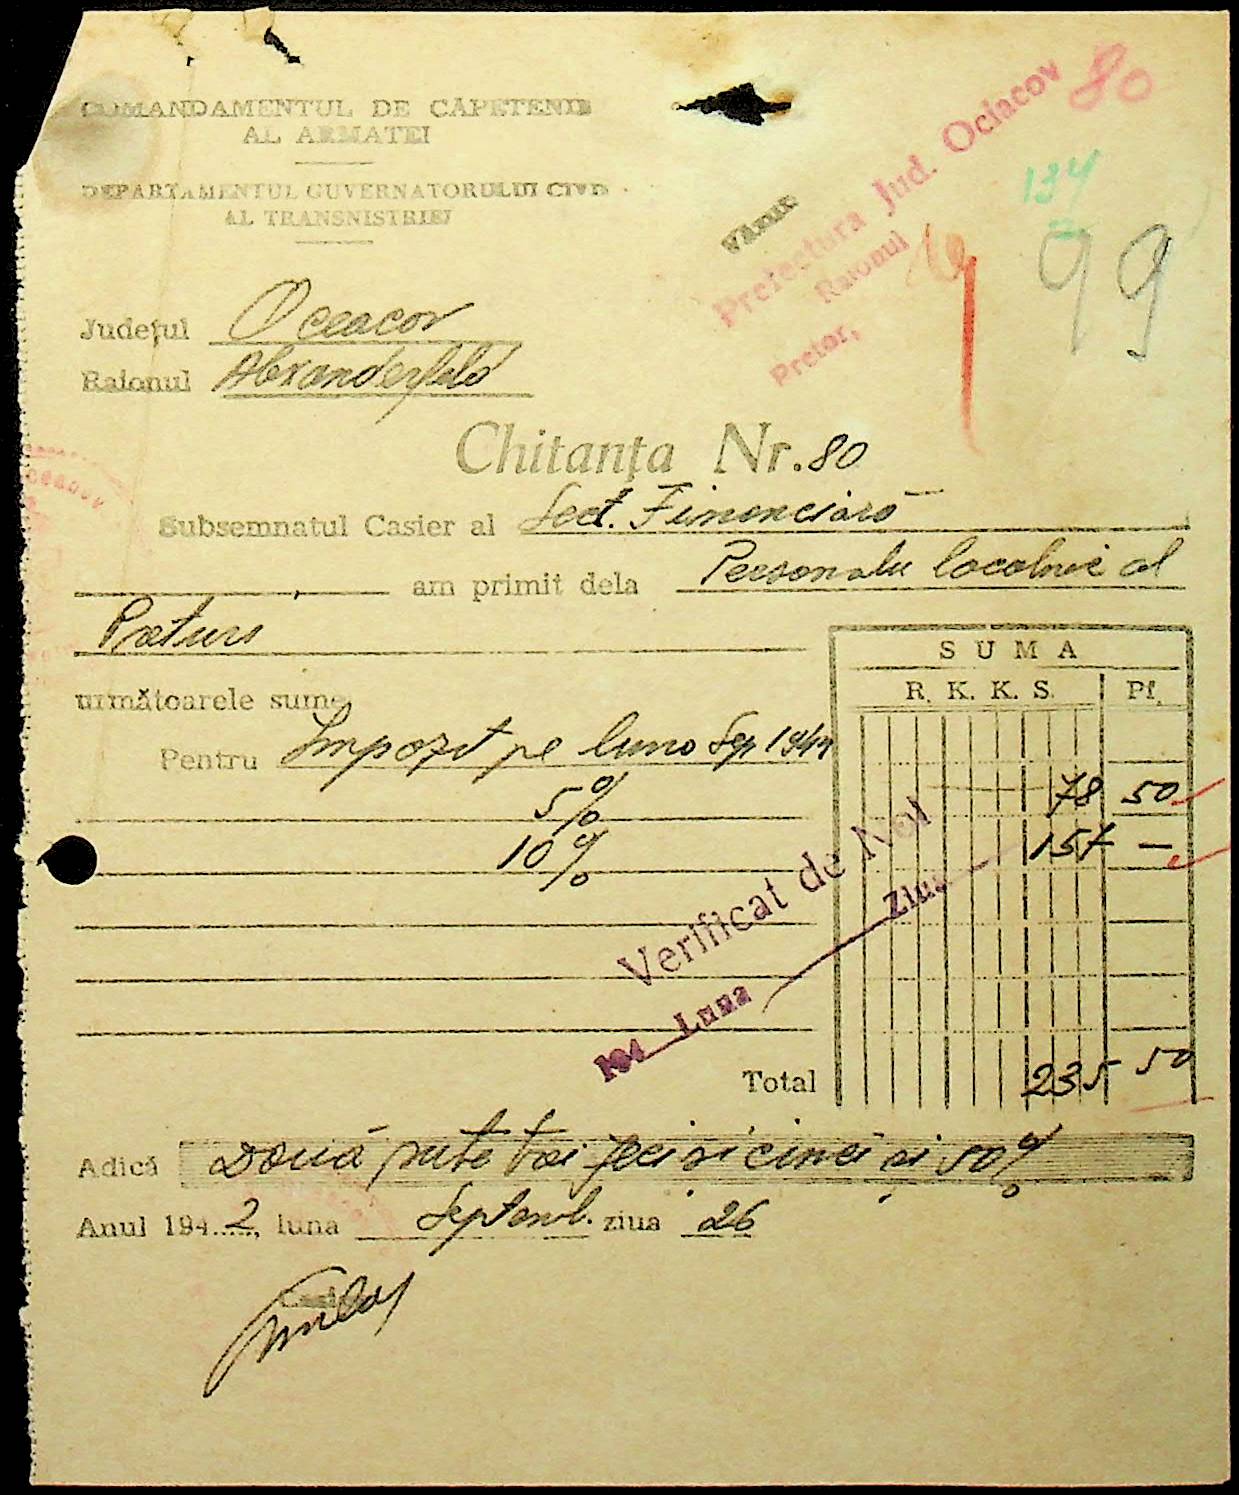 COMANDAMENTUL DE CAPETENIE
AL ARMATEI
DEPARTAMENTUL GUVERNATORULUI CIVIL
AL TRANSNISTRIEI
80
134
99
Văzut
Prefectura Jud. Ociacov
Raionul
Pretor,
Județul Oceacov
Raionul Alexanderfeld
Chitanța Nr. 80
Subsemnatul Casier al Sect. Financiară
am primit dela Personalu localnic al
Preturi
următoarele sume
SUMA
R. K. K. S. Pf.
Pentru Impozit pe luna Sep 1942
5% 78 50
10% 157 —
Verificat de Noi
194 Luna Ziua
Total 235 50
Adică Două sute trei zeci si cinci si 50%
Anul 194 2, luna Septemb. ziua 26
Casier